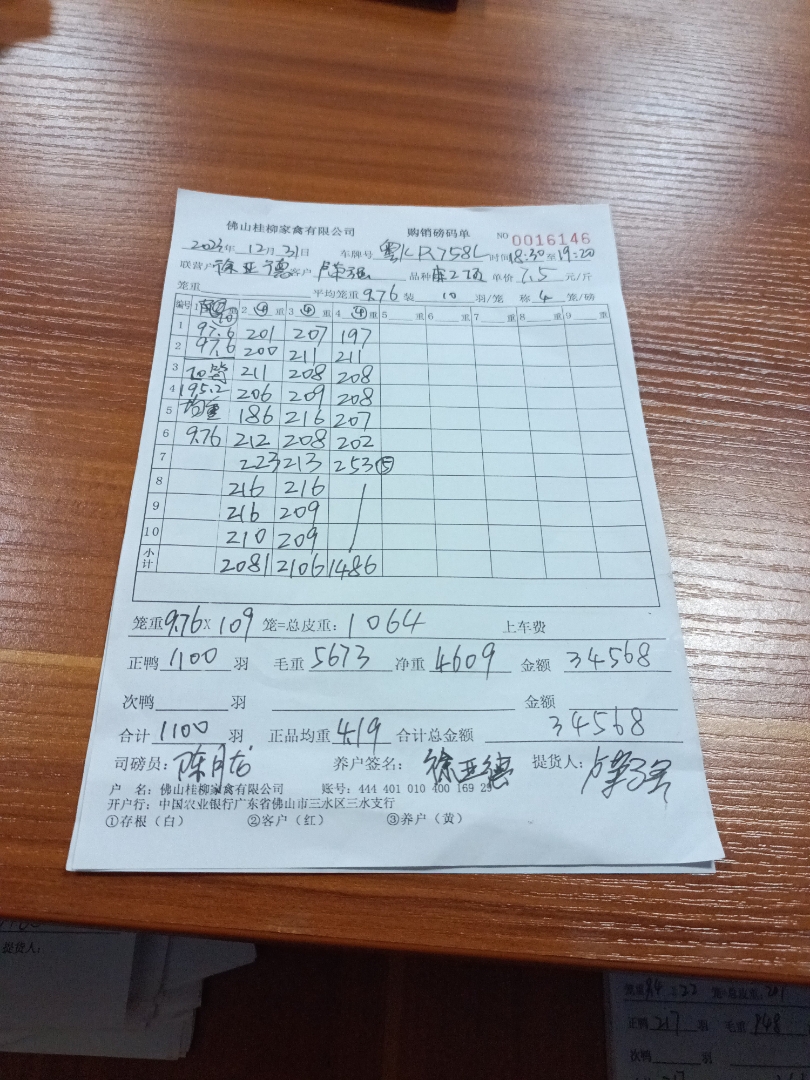 佛山桂柳家禽有限公司 购销磅码单 NO 0016146
2023年 12月 31日 车牌号 粤KR758L 时间 18:30至19:20
联营户 徐亚德 客户 卢荣强 品种 单价 7.5 元/斤
笼重 平均笼重 9.76 装 10 羽/笼 称 4 笼/磅
编号 1 重 2 ④ 重 3 ④ 重 4 ④ 重 5 重 6 重 7 重 8 重 9 重
1 97.6 201 207 197
2 97.6 200 211 211
3 20笼 211 208 208
4 195.2 206 209 208
5 均重 186 216 207
6 9.76 212 208 202
7 223 213 253⑤
8 216 216
9 216 209
10 210 209
小计 2081 2106 1486
笼重 9.76 x 109 笼=总皮重: 1064 上车费
正鸭 1100 羽 毛重 5673 净重 4609 金额 34568
次鸭 羽 金额
合计 1100 羽 正品均重 4.19 合计总金额 34568
司磅员: 陈月龙 养户签名: 徐亚德 提货人: 卢荣强
户 名: 佛山桂柳家禽有限公司 账号: 444 401 010 400 169 29
开户行: 中国农业银行广东省佛山市三水区三水支行
①存根(白) ②客户(红) ③养户(黄)
提货人:
笼重 9.4 22 笼=总皮重: 207
正鸭 217 羽 毛重 948
次鸭 羽
217